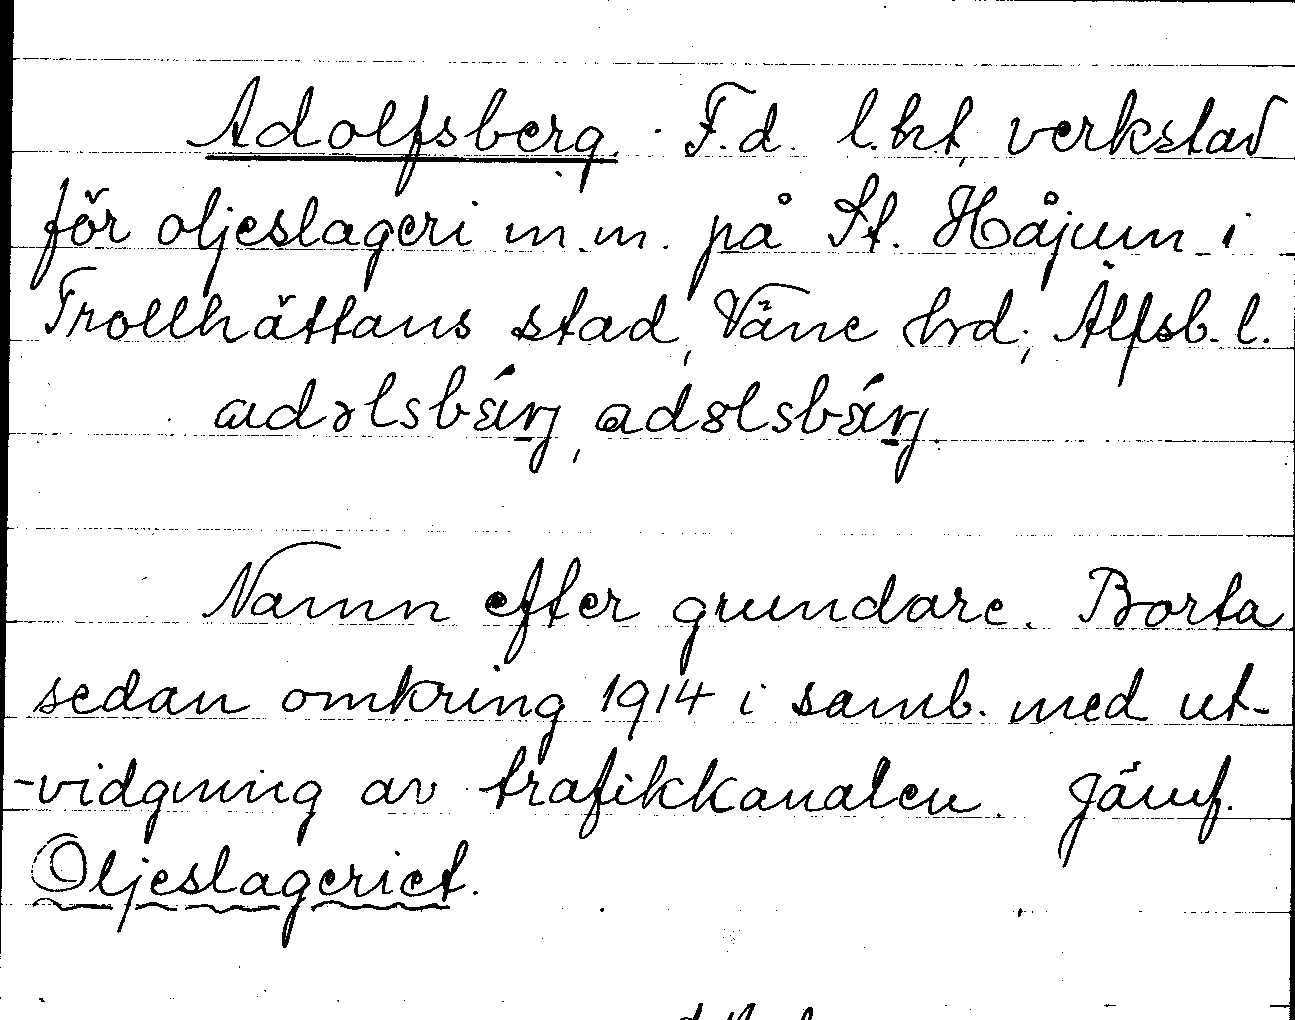 Adolfsberg. F.d. l.ht, verkstad
för oljeslageri m.m. på St. Håjum i
Trollhättans stad, Väne hrd; Älfsb. l.
adɔlsbárj, adɷlsbárj.
Namn efter grundare. Borta
sedan omkring 1914 i samb. med ut-
-vidgning av trafikkanalen. Jämf.
Oljeslageriet.